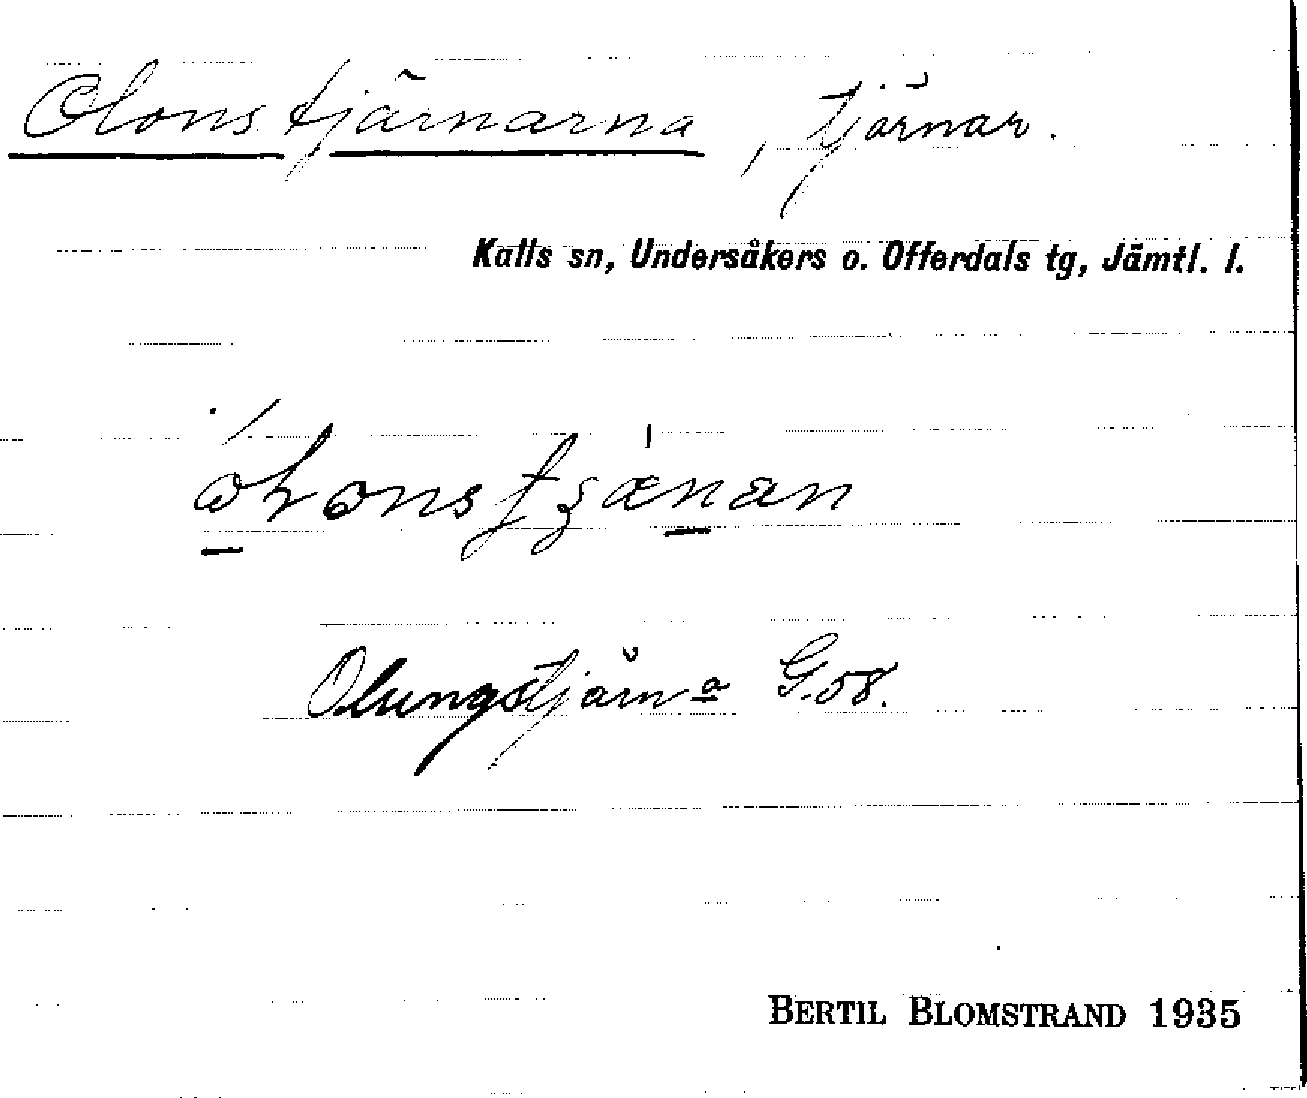 Olonstjärnarna, tjärnar.
Kalls sn, Undersåkers o. Offerdals tg, Jämtl. l.
Olungstjärna G.58.
BERTIL BLOMSTRAND 1935